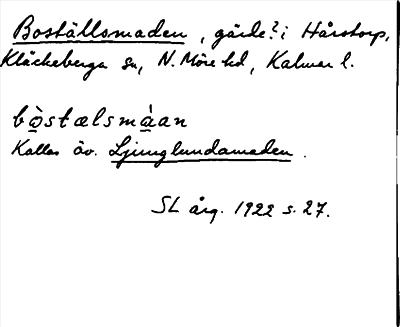 Boställsmaden, gärde? i Hårstorp,
Kläckeberga sn, N. Möre hd, Kalmar l.
bò̱stælsmà̱an
Kallas äv. Ljunglundamaden.
SL årg. 1922 s. 27.